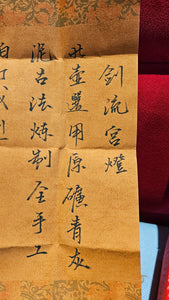 劍流宮燈
此壺選用原礦青灰
泥古法炼制全手工